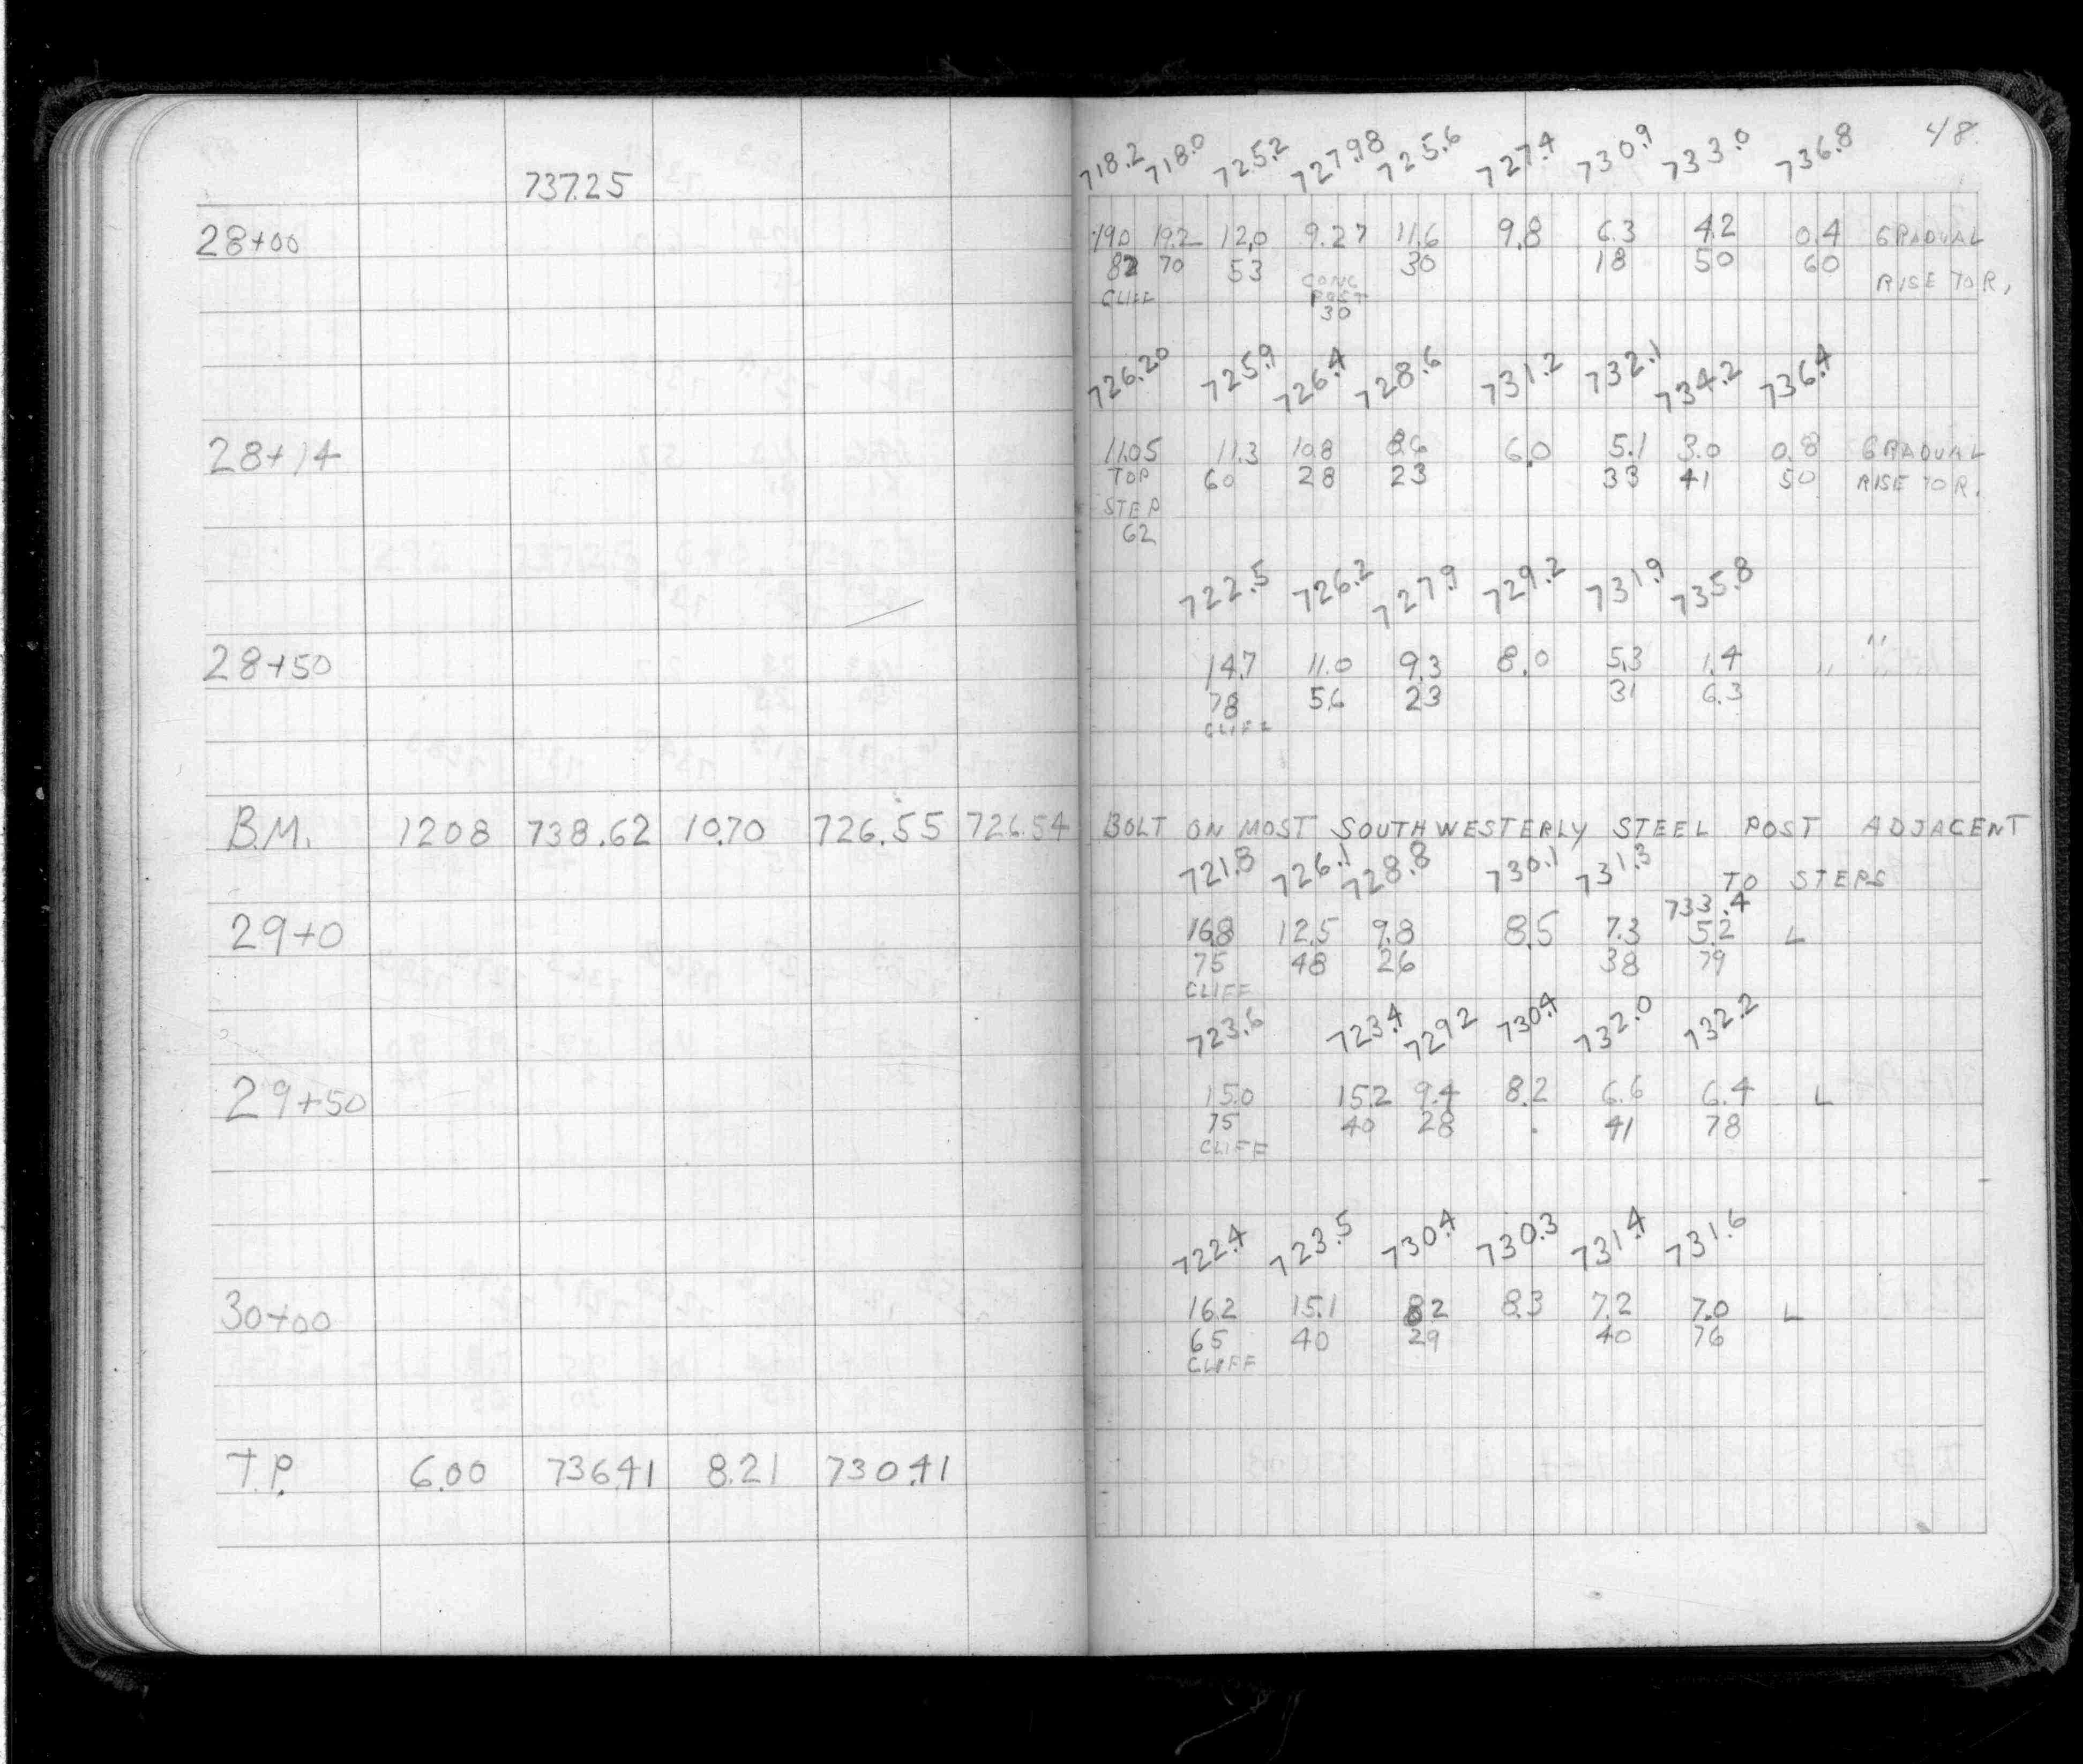 48.
718.2 718.0 725.2 727.98 725.6 727.4 730.9 733.0 736.8
737.25
28+00 19.0 19.2 12.0 9.27 11.6 9.8 6.3 4.2 0.4 GRADUAL
82 70 53 CONC 30 18 50 60 RISE TO R.
CLIFF POST
30
726.20 725.9 726.4 728.6 731.2 732.1 734.2 736.4
28+14 11.05 11.3 10.8 8.6 6.0 5.1 3.0 0.8 GRADUAL
TOP 60 28 23 33 41 50 RISE TO R.
STEP
62
722.5 726.2 727.9 729.2 731.9 735.8
28+50 14.7 11.0 9.3 8.0 5.3 1.4 " " "
78 56 23 31 6.3
CLIFF
B.M. 12.08 738.62 10.70 726.55 726.54 BOLT ON MOST SOUTHWESTERLY STEEL POST ADJACENT
TO STEPS
721.8 726.1 728.8 730.1 731.3 733.4
29+0 16.8 12.5 9.8 8.5 7.3 5.2 L
75 48 26 38 79
CLIFF
723.6 723.4 729.2 730.4 732.0 732.2
29+50 15.0 15.2 9.4 8.2 6.6 6.4 L
75 40 28 41 78
CLIFF
722.4 723.5 730.4 730.3 731.4 731.6
30+00 16.2 15.1 8.2 8.3 7.2 7.0 L
65 40 29 40 76
CLIFF
T.P. 6.00 736.41 8.21 730.41